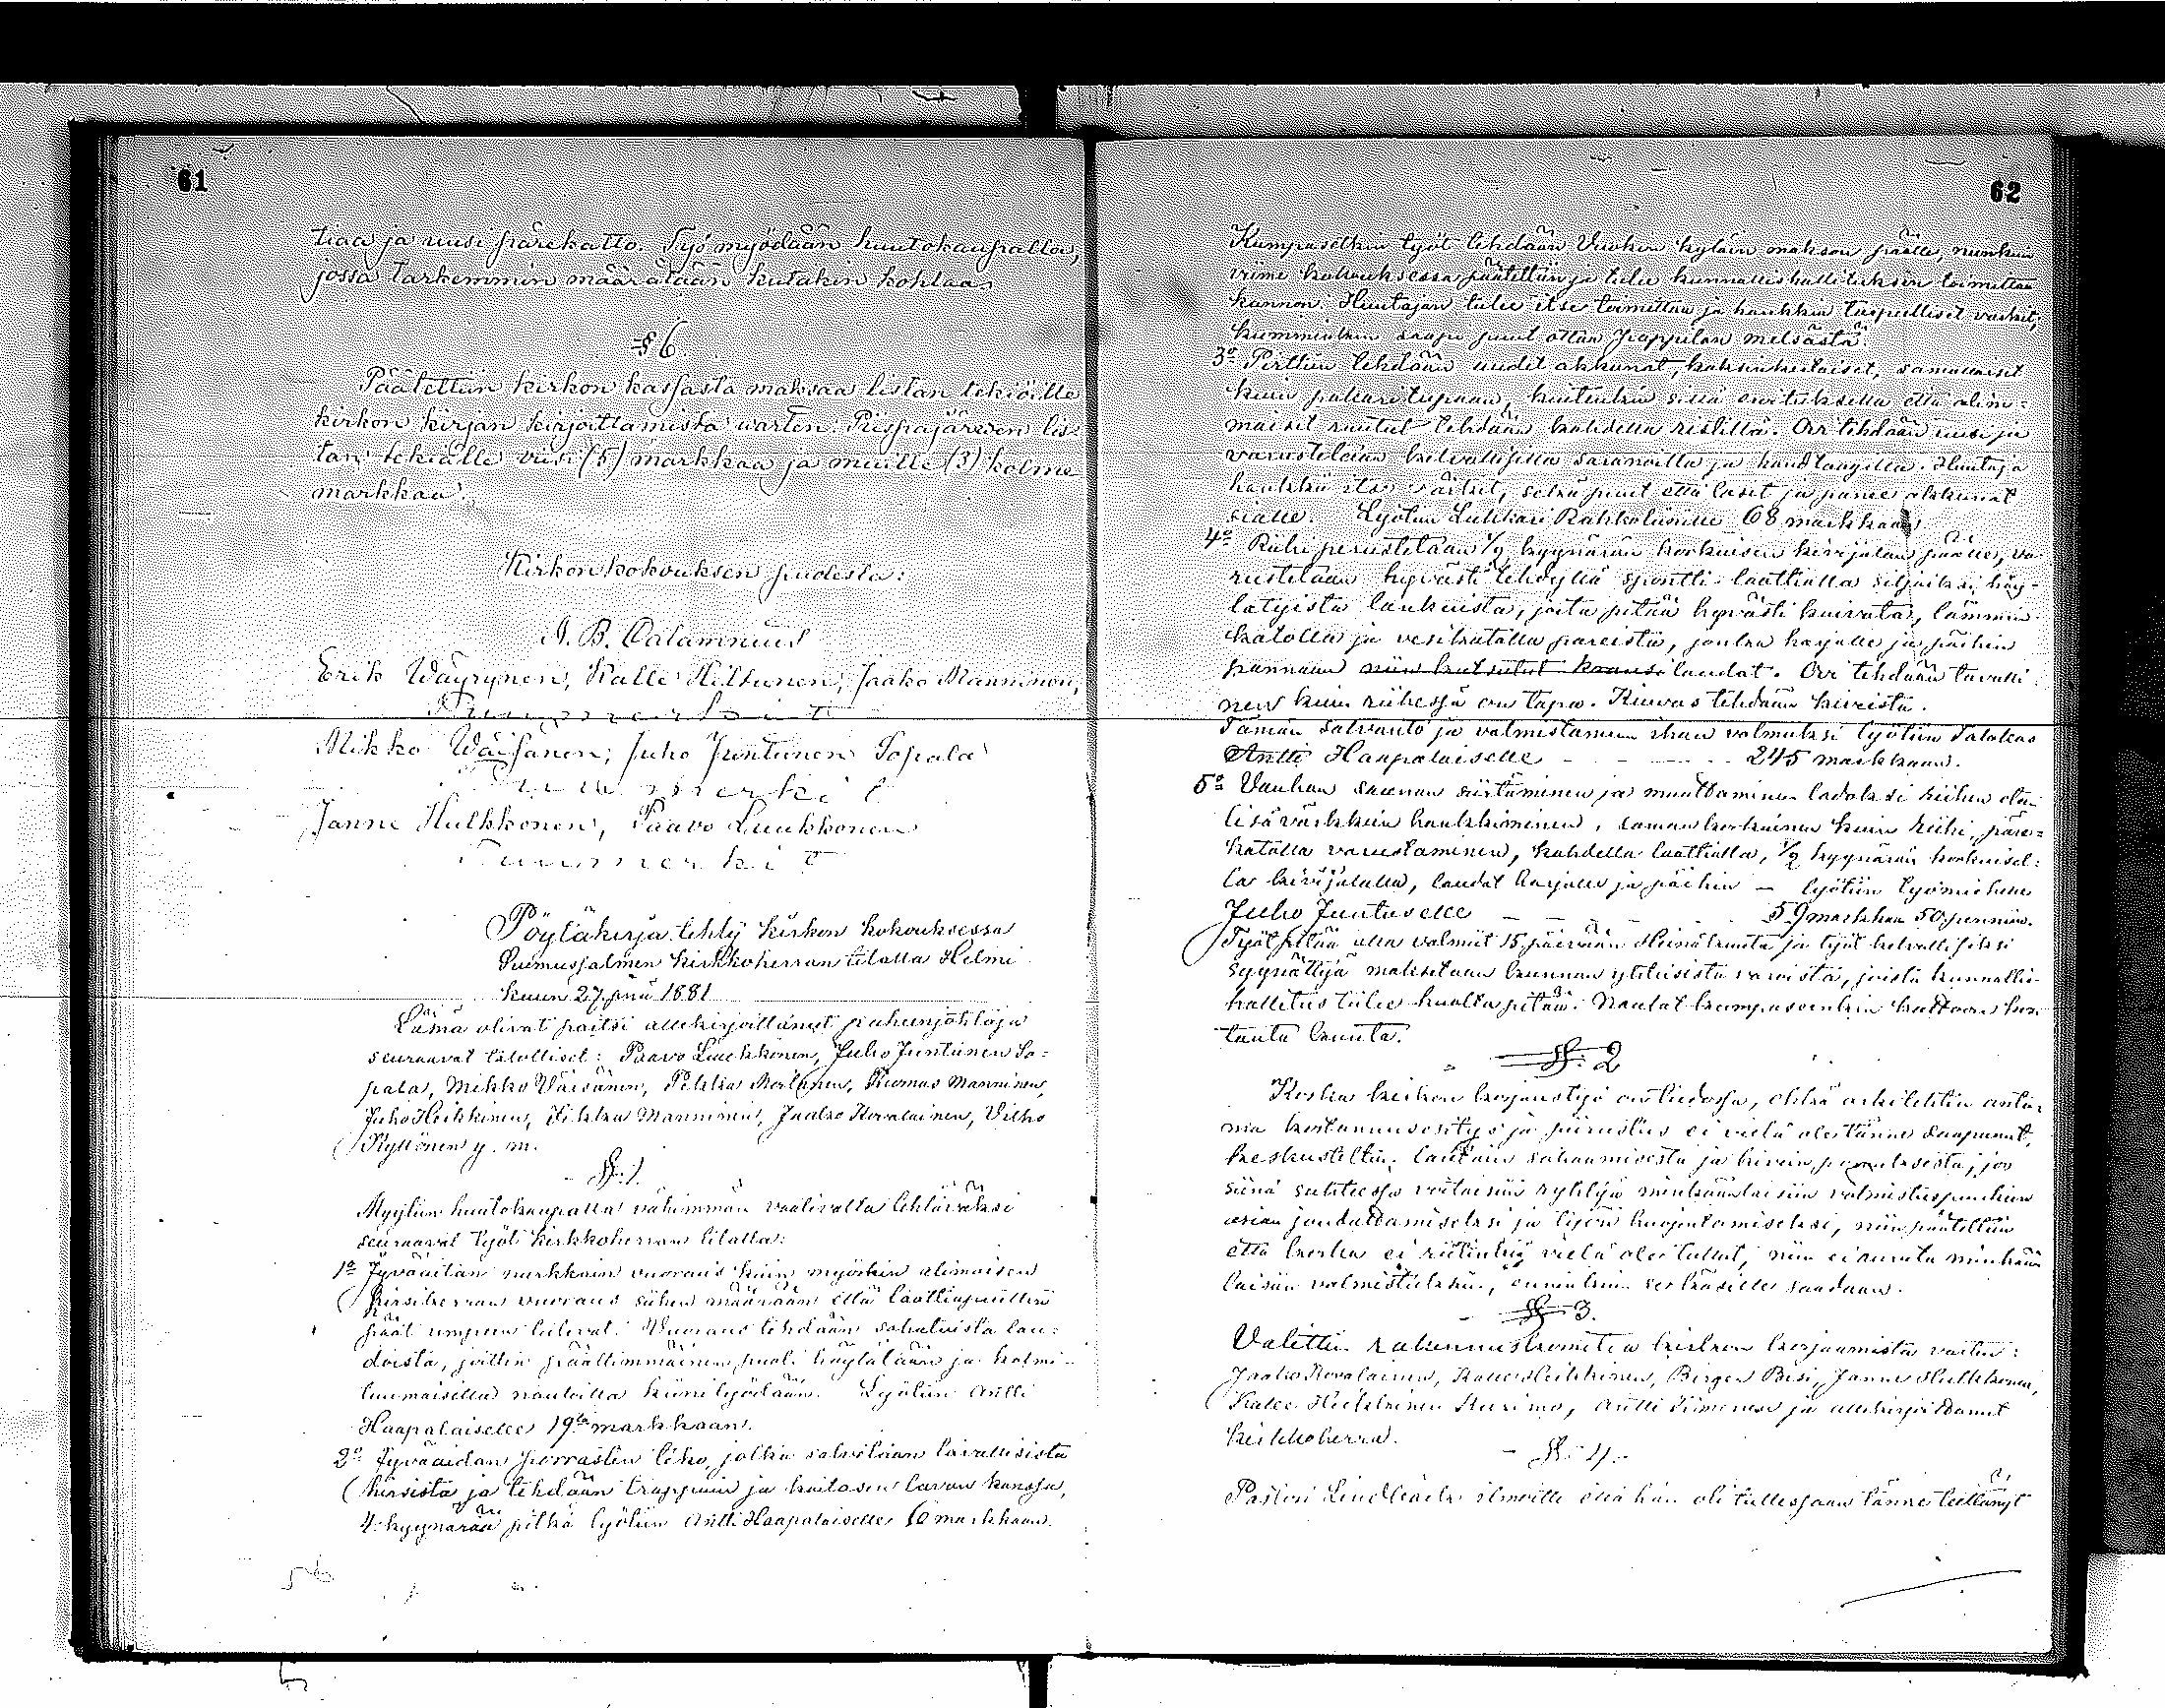 61
tiaa ja uusi pärekatto. Työ myödään huutokaupalla,
jossa tarkemmin määrätään kutakin kohtaa.
§ 6
Päätettiin kirkon kassasta maksaa listan tekiöille
kirkon kirjan kirjoittamista warten: Piispajärwen lis-
tan tekiälle viisi (5) markkaa ja muille (3) kolme
markkaa.
Kirkonkokouksen puolesta:
A. B. Calamnius
Erik Wäyrynen, Kalle Hiltunen, Jaako Manninen,
Puumerkit
Mikko Wäisänen; Juho Juntunen Sopala
Puumerkit
Janne Hulkkonen, Paavo Luukkonen
Puumerkit
Pöytäkirja tehty kirkon kokouksessa
Suomussalmen kirkkoherran tilalla Helmi
kuun 27 pnä 1881
Läsnä olivat paitsi allekirjoittanut puheenjohtaja
seuraavat talolliset: Paavo Luukkonen, Juho Juntunen So-
pala, Mikko Väisänen, Pekka Moilanen, Tuomas Manninen,
Juho Heikkinen, Pekka Manninen, Jaako Kovalainen, Vilho
Kyllönen y. m.
§: 1.
Myytiin huutokaupalla vähimmän vaativalla tehtäväksi
seuraavat työt kirkkoherran tilalla:
1o Jyväaitan nurkkain vuoraus kuin myöskin alimaisen
hirsikerran vuoraus siihen määrään että laattiapuitten
päät umpeen tulevat. Vuoraus tehdään sahatuista lau-
doista, joitten päällimmäinen puoli höylätään ja kolmi-
tuumaisilla nauloilla kiini lyödään. Lyötiin Antti
Haapalaiselle 19ta markkaan.
2o Jyväaidan porrasten teko, jotka salvetaan tavallisista
hirsistä ja tehdään trappuin ja kaitasen lavan kanssa,
4 kyynärää pitkä lyötiin Antti Haapalaiselle 16 markkaan.
62
Kumpaisetkin työt tehdään Vuokin kylään makson päälle, niinkuin
viime kokouksessa päätettiin ja tulee kunnallishallituksen toimittaa
kunnon. Huutajan tulee itse toimittaa ja hankkia tarpeelliset värkit,
kumminkin saapi puut ottaa Pappilan metsästä.
3o Pirttiin tehdään uudet akkunat, kaksinkertaiset, samallaiset
kuin pakaritupaan, kuitenkin sillä eroituksella että alim-
maiset ruutut tehdään kahdella ristillä. Ovi tehdään uusi ja
varustetaan kelvollisilla saranoilla ja handtaagilla. Huutaja
hankkii itse värkit, sekä puut että lasit ja panee akkunat
sialle. Lyötiin Lukkari Rahkolinille 68 markkaan.
4o Riihi perustetaan 1/2 kyynärän korkuisen kivijalan päälle, va-
rustetaan hyvästi tehdyllä spontti-laattialla siljäiksi höy-
latyista lankuista, joita pitää hyvästi kuivata, lämmin
katolla ja vesikatolla päreistä, jonka harjalle ja päihin
pannaan niin kutsutut kransi laudat. Ovi tehdään tavalli
nen kuin riihessä on tapa. Kiuvas tehdään kivistä.
Tämän salvanto ja valmistaminen ihan valmiiksi lyötiin Talokas
Antti Haapalaiselle - - - - 245 markkaan.
5o Vanhan saunan siirtäminen ja muuttaminen ladoksi riihen eteen
lisävärkkein hankkiminen, saman korkuinen kuin riihi, päre-
katolla varustaminen, kahdella laattialla, 1/2 kyynärän korkuisel-
la kivijalalla, laudat harjalle ja päihin - lyötiin työmiehelle
Juho Juntuselle - - - - 59 markkaan 50 penniin.
Työt pitää olla valmiit 15 päivään Heinäkuuta ja työt kelvollisiksi
syynättyä maksetaan kunnan yhteisistä varoista, joista kunnallis-
hallitus tulee huolta pitää. Naulat kumpaseenkin kattoon kus-
tantaa kunta.
§: 2
Koska kirkon korjaustyö on tiedossa, ehkä arkitehtin anta-
ma kostannusesitys ja piirustus ei vielä ole tänne saapunut,
keskusteltiin lautain sahaamisesta ja kivein porauksesta, jos
siinä suhteessa voitaisiin ryhtyä minkäänlaisiin valmistuspuuhiin
asian jouduttamiseksi ja työn huojentamiseksi, niin päätettiin
että koska ei riitinkiä vielä ole tullut, niin ei ruveta minkään
laisiin valmistuksiin, ennenkuin se käsille saadaan.
§ 3.
Valittiin rakennuskomitea kirkon korjaamista varten:
Jaako Kovalainen, Kalle Heikkinen, Birger Bisi, Janne Hulkkonen,
Kalle Heikkinen Kurimo, Antti Kimonen ja allekirjoittanut
kirkkoherra.
§: 4.
Pastori Lindbäck ilmoitti että hän oli tullessaan tänne teettänyt